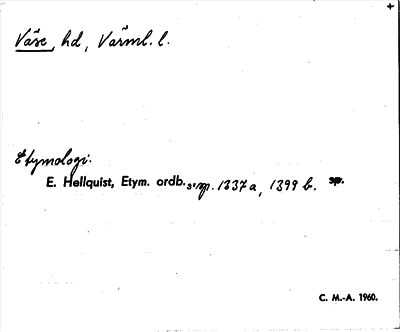 +
Väse, hd, Värml. l.
Etymologi.
E. Hellquist, Etym. ordb. s. 1337 a, 1399 b. sp.
C. M.-A. 1960.